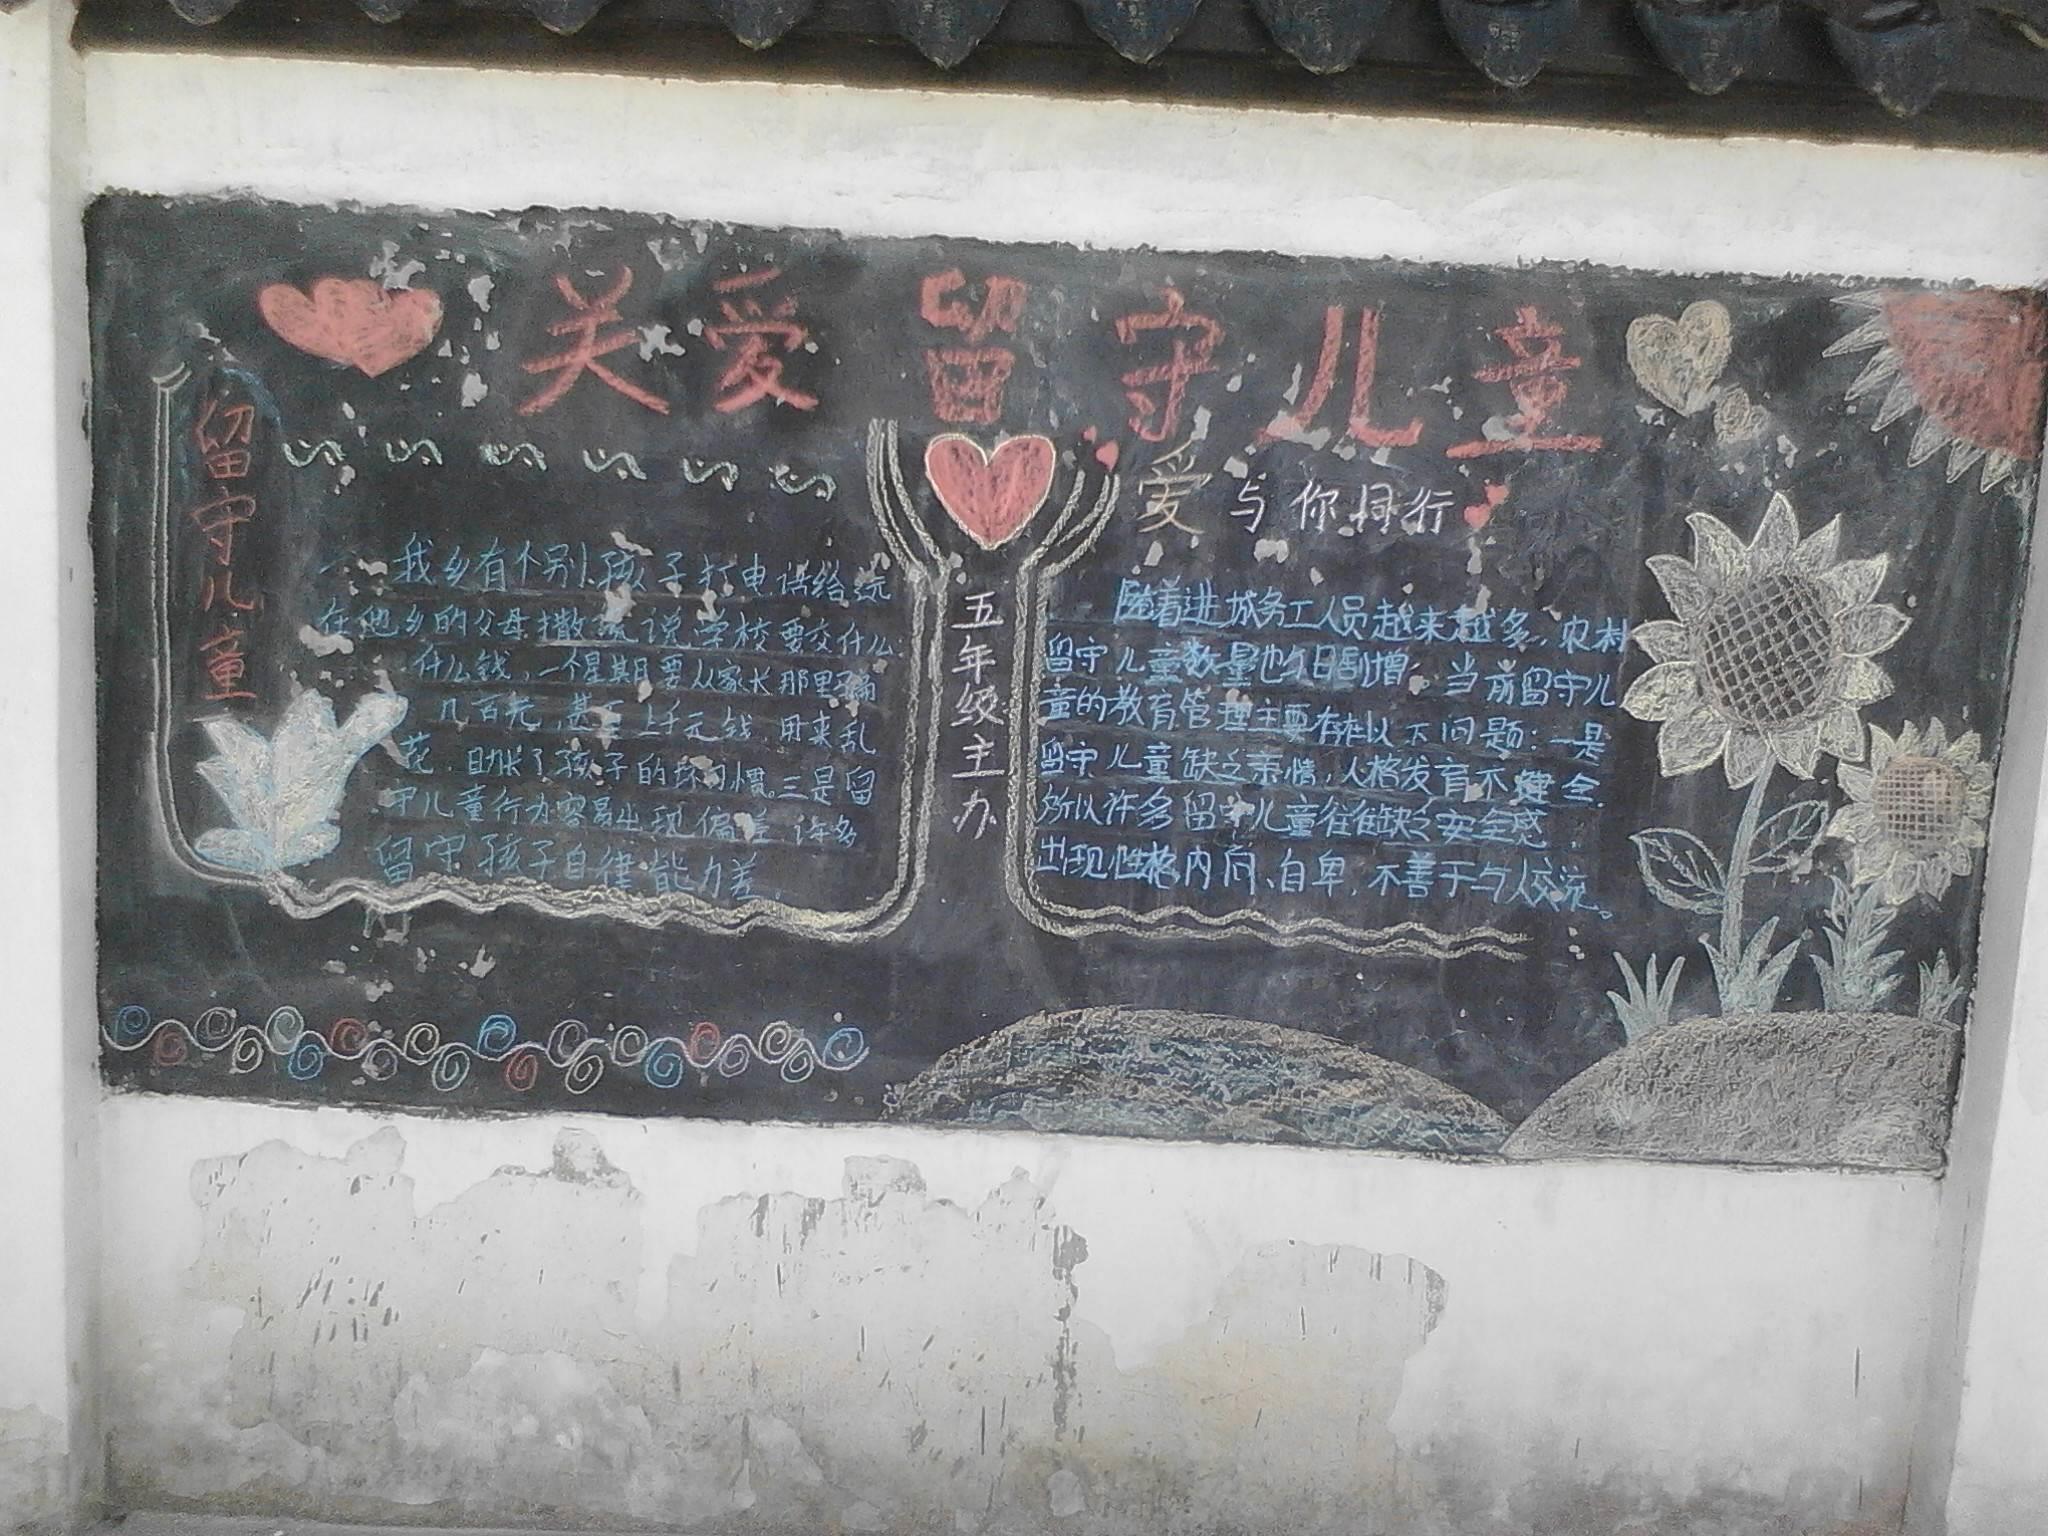 关爱留守儿童
留守儿童
一、我乡有个别孩子打电话给远
在他乡的父母撒谎说学校要交什么
什么钱，一个星期要从家长那里骗
几百元，甚至上千元钱，用来乱
花，助长了孩子的坏习惯。三是留
守儿童行为容易出现偏差，许多
留守孩子自律能力差。
五年级主办
爱与你同行
随着进城务工人员越来越多，农村
留守儿童数量也与日剧增，当前留守儿
童的教育管理主要存在以下问题：一是
留守儿童缺乏亲情，人格发育不健全，
所以许多留守儿童往往缺乏安全感，
出现性格内向、自卑，不善于与人交流。